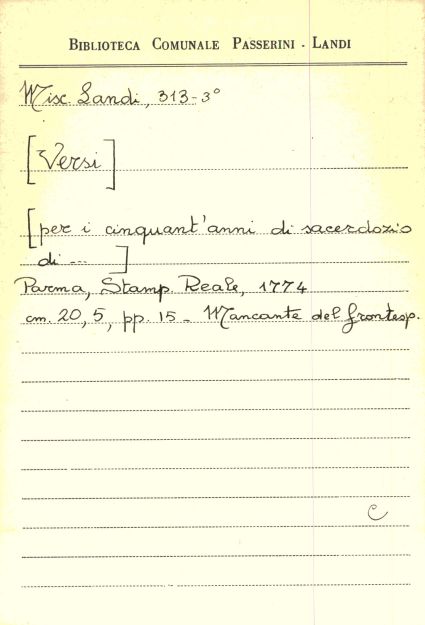 BIBLIOTECA COMUNALE PASSERINI - LANDI
Misc. Landi, 313-3°
[Versi]
[per i cinquant'anni di sacerdozio
di ---]
Parma, Stamp. Reale, 1774
cm. 20,5, pp. 15 - Mancante del frontesp.
C